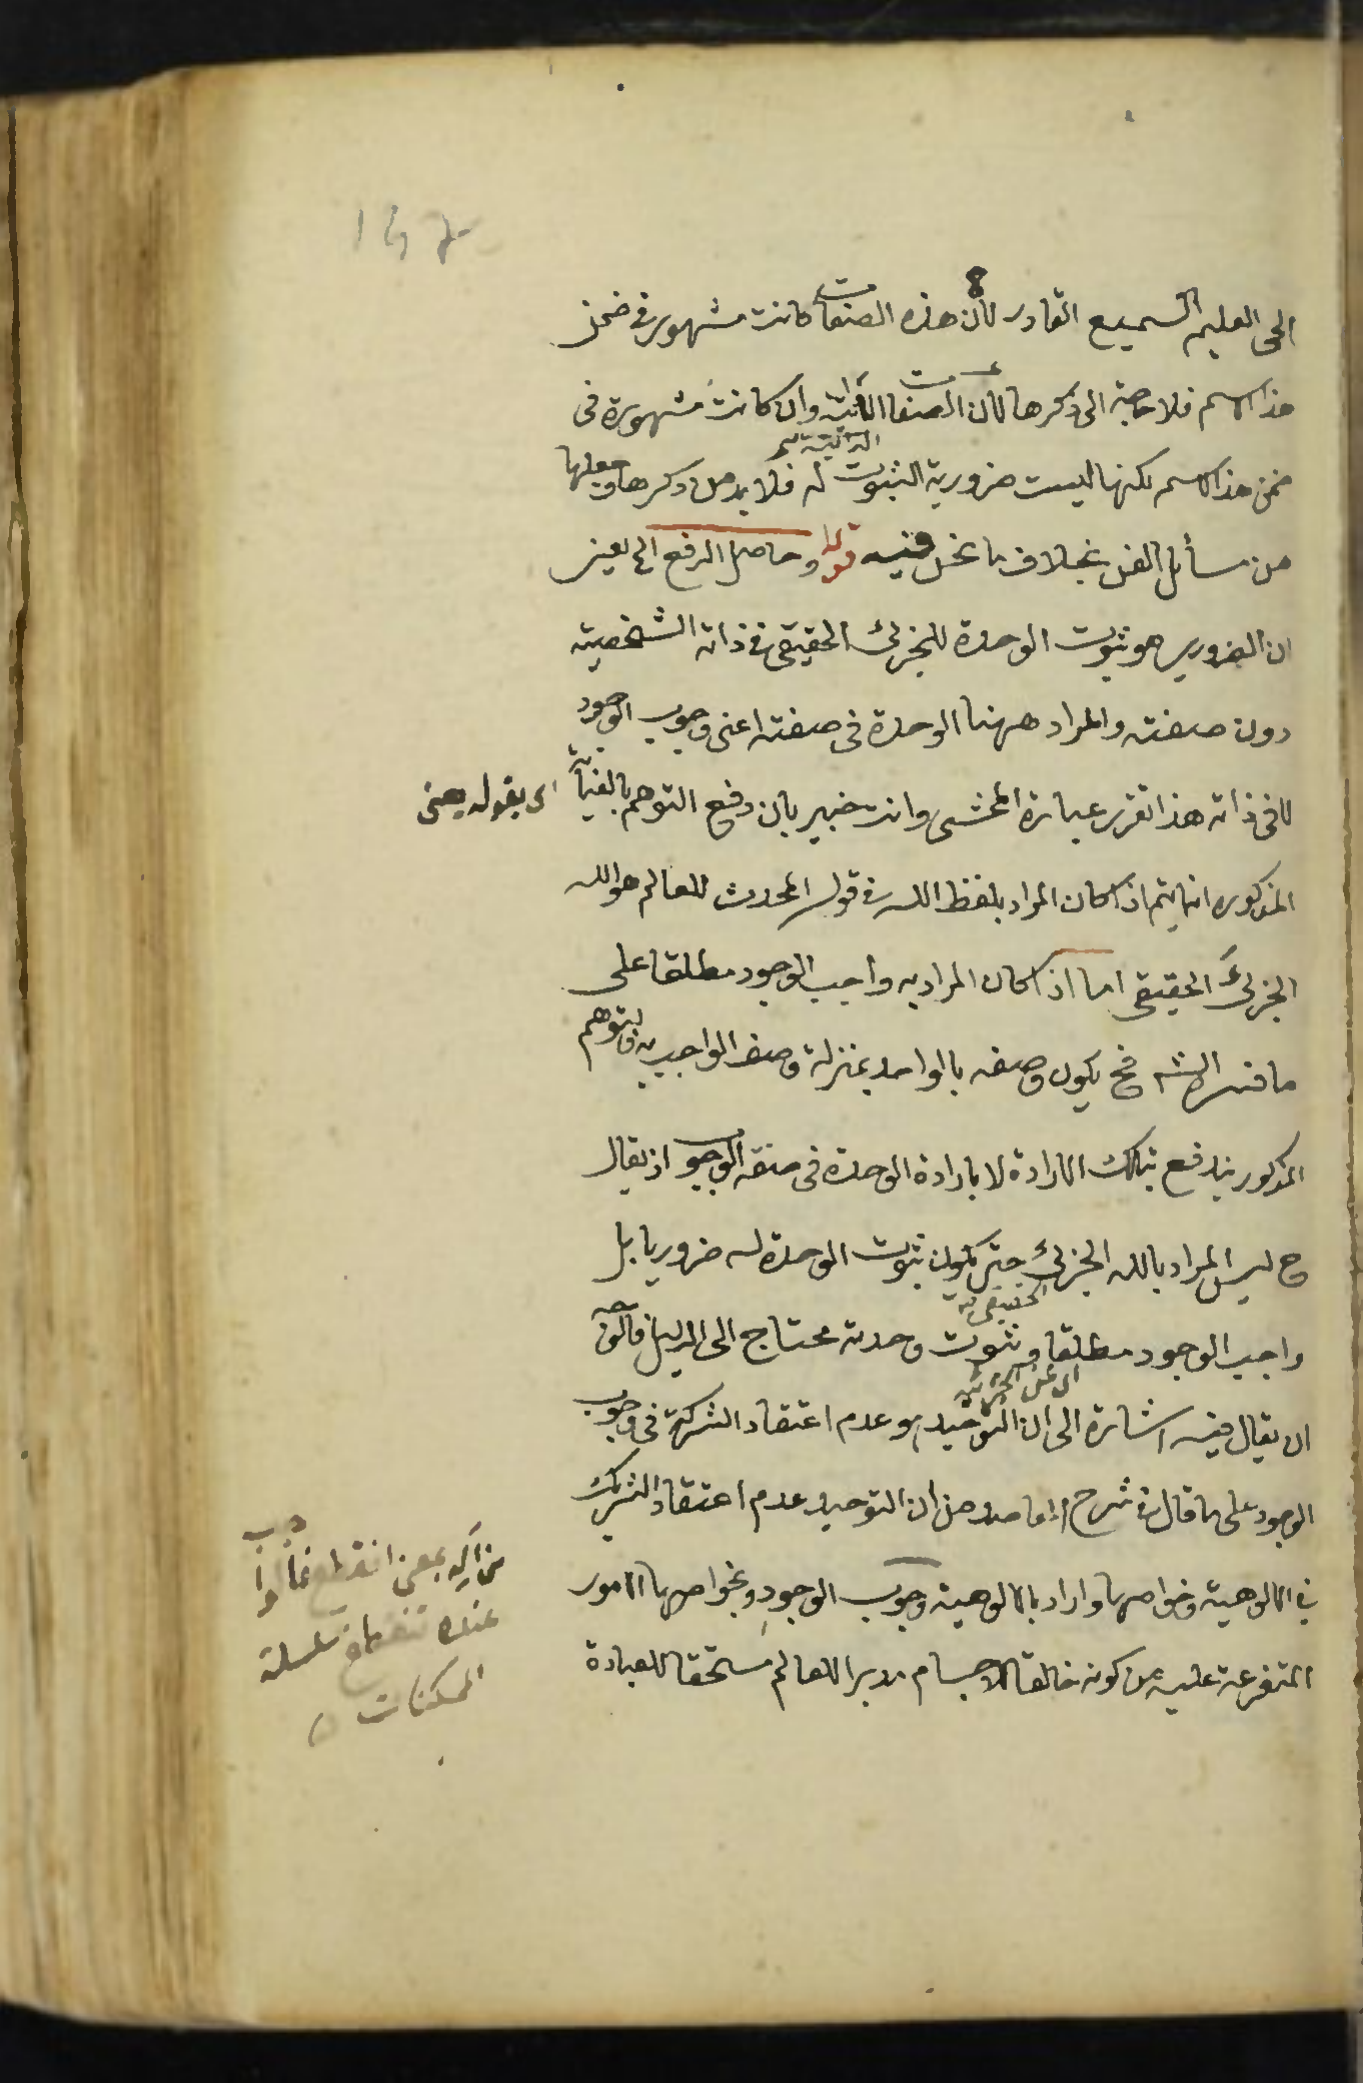 الحى العليم السميع القادر لان هذه الصفات كانت مشهورة فى ضمن
هذا الاسم فلا حاجة الى ذكرها لان الصفات الذاتية وان كانت مشهورة فى
ضمن هذا الاسم لكنها ليست ضرورية الثبوت له فلا بد من ذكرها وجعلها
من مسائل الفن بخلاف ما نحن فيه قوله وحاصل الدفع الى يعنى
ان الضرورى هو ثبوت الوحدة للجزئى الحقيقى فى ذاته الشخصية
دون صفته والمراد ههنا الوحدة فى صفته اعنى وجوب الوجود
لا فى ذاته هذا تقرير عبارة المحشى وانت خبير بان دفع التوهم بالعناية
اى بقوله يعنى
المذكورة انما يتم اذا كان المراد بلفظ الله فى قوله المحدث للعالم هو الله
الجزئى الحقيقى اما اذا كان المراد به واجب الوجود مطلقا على
ما فسره الشه فح يكون وصفه بالواحد بمنزلة وصف الواجب به فالتوهم
المذكور يندفع بتلك الارادة لا بارادة الوحدة فى صفة الوجوب اذ يقال
ح ليس المراد بالله الجزئى حتى يكون ثبوت الوحدة له ضروريا بل
الحقيقى
واجب الوجود مطلقا وثبوت وحدته محتاج الى الدليل
ان يقال فيه اشارة الى ان التوحيد هو عدم اعتقاد الشركة فى وجوب
الوجود على ما قال فى شرح المقاصد من ان التوحيد عدم اعتقاد الشريك
فى الالوهية وخواصها واراد بالالوهية وجوب الوجود وبخواصها الامور
المتفرعة عليه من كونه خالقا للاجسام مدبرا للعالم مستحقا للعبادة
بمعنى انقطع
عنده تنقطع سلسلة
الممكنات